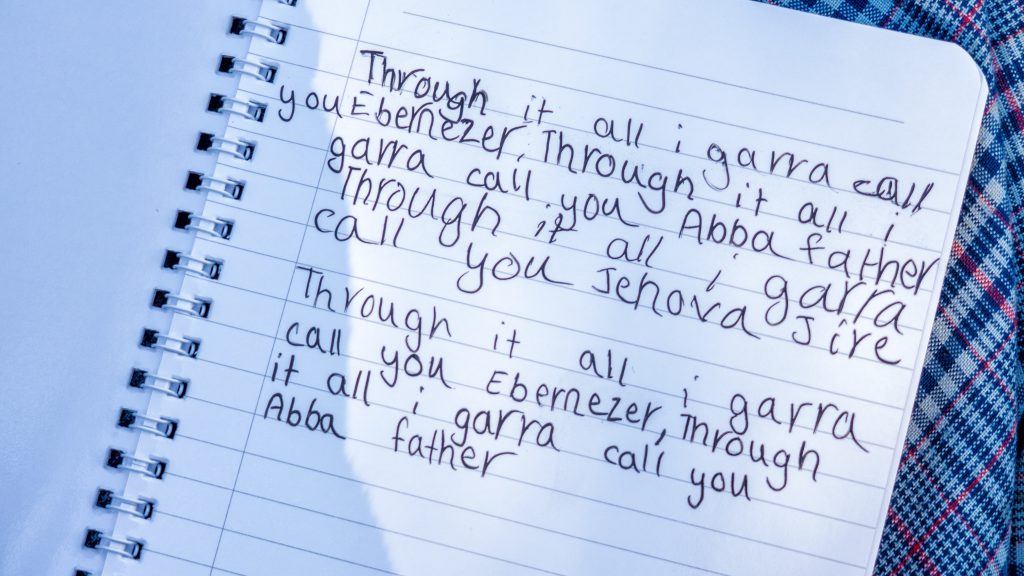 Through it all i garra call
you Ebernezer, Through it all i
garra call you Abba father
Through it all i garra
call you Jehova Jire
Through it all i garra
call you Ebernezer, Through
it all i garra call you
Abba father